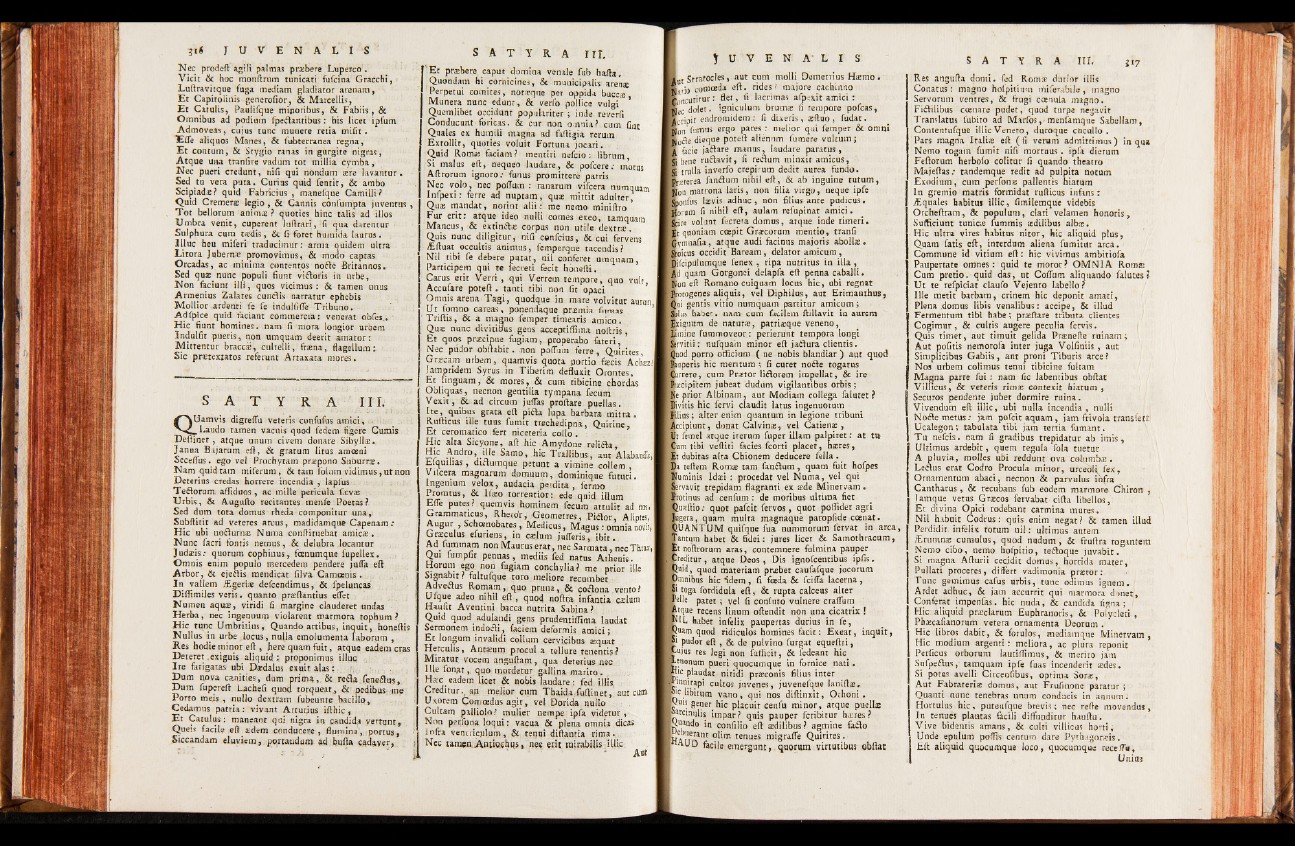 316 JUVENALIS
Nec prodest agili palmas præbere Luperco.
Vicit & hoc monstrum tunicati fuscina Gracchi,
Lustravitque fuga mediam gladiator arenam,
Et Capitolinis generosior, & Marcellis,
Et Catulis, Paulisque minoribus, & Fabiis, &
Omnibus ad podium spectantibus: his licet ipsum
Admoveas, cujus tunc munere retia misit.
Esse aliquos Manes, & subterranea regna,
Et contum, & Stygio ranas in gurgite nigras,
Atque una transire vadum tot millia cymba,
Nec pueri credunt, nisi qui nondum ære lavantur.
Sed tu vera puta. Curius quid sentit, & ambo
Scipiadæ? quid Fabricius, manesque Camilli?
Quid Cremeræ legio, & Cannis consumpta juventus,
Tot bellorum animæ? quoties hinc talis ad illos
Umbra venit, cuperent lustrari, si qua darentur
Sulphura cum tedis, & si foret humida laurus.
Illuc heu miseri traducimur: arma quidem ultra
Litora Jubernæ promovimus, & modo captas
Orcadas, ac minima contentos nocte Britannos.
Sed quæ nunc populi fiunt victoris in urbe,
Non faciunt illi, quos vicimus: & tamen unus
Armenius Zalates cunctis narratur ephebis
Mollior ardenti se se indulsisse Tribuno.
Adspice quid faciant commercia: venerat obses,
Hic fiunt homines. nam si mora longior urbem
Indulsit pueris, non umquam deerit amator:
Mittentur braccæ, cultelli, fræna, flagellum:
Sic prætextatos referunt Artaxata mores.
SATYRA III.
QUamvis digressu veteris confusus amici,
Laudo tamen vacuis quod sedem figere Cumis
Destinet, atque unum civem donare Sibyllæ.
Janua Bajarum est, & gratum litus amœni
Secessus. ego vel Prochytam præpono Suburræ.
Nam quid tam miserum, & tam solum vidimus, ut non
Deterius credas horrere incendia, lapsus
Tectorum assiduos, ac mille pericula sævæ
Urbis, & Augusto recitantes mense Poetas?
Sed dum tota domus rheda componitur una,
Substitit ad veteres arcus, madidamque Capenam:
Hic ubi nocturnæ Numa constituebat amicæ.
Nunc sacri fontis nemus, & delubra locantur
Judæis: quorum cophinus, fœnumque supellex.
Omnis enim populo mercedem pendere jussa est
Arbor, & ejectis mendicat silva Camœnis.
In vallem Ægeriæ descendimus, & speluncas
Dissimiles veris. quanto præstantius esset
Numen aquæ, viridi si margine clauderet undas
Herba, nec ingenuum violarent marmora tophum?
Hic tunc Umbritius, Quando artibus, inquit, honestis
Nullus in urbe locus, nulla emolumenta laborum,
Res hodie minor est, here quam fuit, atque eadem cras
Deteret exiguis aliquid: proponimus illuc
Ire fatigatas ubi Dædalus exuit alas:
Dum nova canities, dum prima, & recta senectus,
Dum superest Lachesi quod torqueat, & pedibus me
Porto meis, nullo dextram subeunte bacillo,
Cedamus patria: vivant Arturius isthic,
Et Catulus: maneant qui nigra in candida vertunt,
Queis facile est ædem conducere, flumina, portus,
Siccandam eluviem, portandum ad busta cadaver,
SATYRA III.
Et præbere caput domina venale sub hasta.
Quondam hi cornicines, & municipalis arenæ
Perpetui comites, notæque per oppida buccæ,
Munera nunc edunt, & verso pollice vulgi
Quemlibet occidunt populariter; inde reversi
Conducunt foricas. & cur non omnia? cum sint
Quales ex humili magna ad fastigia rerum
Extollit, quoties voluit Fortuna jocari.
Quid Romæ faciam? mentiri nescio: librum,
Si malus est, nequeo laudare, & poscere: motus
Astrorum ignoro: funus promittere patris
Nec volo, nec possum: ranarum viscera numquam
Inspexi: ferre ad nuptam, quæ mittit adulter,
Quæ mandat, norint alii: me nemo ministro
Fur erit: atque ideo nulli comes exeo, tamquam
Mancus, & extinctæ corpus non utile dextræ.
Quis nunc diligitur, nisi conscius, & cui fervens
Æstuat occultis animus, semperque tacendis?
Nil tibi se debere putat, nil conferet umquam,
Participem qui te secreti fecit honesti.
Carus erit Verri, qui Verrem tempore, quo vult,
Accusare potest. tanti tibi non sit opaci
Omnis arena Tagi, quodque in mare volvitur aurum,
Ut somno careas, ponendaque præmia sumas
Tristis, & a magno semper timearis amico.
Quæ nunc divitibus gens acceptissima nostris,
Et quos præcipue fugiam, properabo fateri,
Nec pudor obstabit. non possum ferre, Quirites,
Græcam urbem, quamvis quota portio fæcis Achææ?
Jampridem Syrus in Tiberim defluxit Orontes,
Et linguam, & mores, & cum tibicine chordas
Obliquas, necnon gentilia tympana secum
Vexit, & ad circum jussas prostare puellas.
Ite, quibus grata est picta lupa barbara mitra.
Rusticus ille tuus sumit trechedipna, Quirine,
Et ceromatico fert niceteria collo.
Hic alta Sicyone, ast hic Amydone relicta,
Hic Andro, ille Samo, hic Trallibus, aut Alabandis,
Esquilias, dictumque petunt a vimine collem,
Viscera magnarum domuum, dominique futuri.
Ingenium velox, audacia perdita, sermo
Promtus, & Isæo torrentior: ede quid illum
Esse putes? quemvis hominem secum attulit ad nos,
Grammaticus, Rhetor, Geometres, Pictor, Aliptes,
Augur, Schœnobates, Medicus, Magus: omnia novit,
Græculus esuriens, in cælum jusseris, ibit.
Ad summam non Maurus erat, nec Sarmata, nec Thrax,
Qui sumpsit pennas, mediis sed natus Athenis.
Horum ego non fugiam conchylia? me prior ille
Signabit? fultusque toro meliore recumbet
Advectus Romam, quo pruna, & coctona vento?
Usque adeo nihil est, quod nostra infantia cælum
Hausit Aventini bacca nutrita Sabina?
Quid quod adulandi gens prudentissima laudat
Sermonem indocti, faciem deformis amici;
Et longum invalidi collum cervicibus æquat
Herculis, Antæum procul a tellure tenentis?
Miratur vocem angustam, qua deterius nec
Ille sonat, quo mordetur gallina marito.
Hæc eadem licet & nobis laudare: sed illis
Creditur. an melior cum Thaida sustinet, aut cum
Uxorem Comœdus agit, vel Dorida nullo
Cultam palliolo? mulier nempe ipsa videtur,
Non persona loqui: vacua & plena omnia dicas
Infra ventriculum, & tenui distantia rima.
Nec tamen Antiochus, nec erit mirabilis illic
Aut
JUVENALIS
Aut Stratocles, aut cum molli Demetrius Hæmo.
Natio comœda est. rides? majore cachinno
Concutitur: flet, si lacrimas aspexit amici:
Nec dolet. igniculum brumæ si tempore poscas,
Accipit endromidem: si dixeris, æstuo, sudat.
Non sumus ergo pares: melior qui semper & omni
Nocte dieque potest alienum sumere vultum;
A facie jactare manus, laudare paratus,
Si bene ructavit, si rectum minxit amicus,
Si trulla inverso crepitum dedit aurea fundo.
Præterea sanctum nihil est, & ab inguine tutum,
Non matrona laris, non filia virgo, neque ipse
Sponsus lævis adhuc, non filius ante pudicus.
Horum si nihil est, aulam resupinat amici.
Scire volunt secreta domus, atque inde timeri.
Et quoniam cœpit Græcorum mentio, transi
Gymnasia, atque audi facinus majoris abollæ.
Stoicus occidit Baream, delator amicum,
Discipulumque senex, ripa nutritus in illa,
Ad quam Gorgonei delapsa est penna caballi.
Non est Romano cuiquam locus hic, ubi regnat
Protogenes aliquis, vel Diphilus, aut Erimanthus,
Qui gentis vitio numquam partitur amicum;
Solus habet. nam cum facilem stillavit in aurem
Exiguum de naturæ, patriæque veneno,
Limine summoveor: perierunt tempora longi
Servitii: nusquam minor est jactura clientis.
Quod porro officium (ne nobis blandiar) aut quod
Pauperis hic meritum: si curet nocte togatus
Currere, cum Prætor lictorem impellat, & ire
Præcipitem jubeat dudum vigilantibus orbis;
Ne prior Albinam, aut Modiam collega salutet?
Divitis hic servi claudit latus ingenuorum
Filius; alter enim quantum in legione tribuni
Accipiunt, donat Calvinæ, vel Catienæ,
Ut semel atque iterum super illam palpitet: at tu
Cum tibi vestiti facies scorti placet, hæres,
Et dubitas alta Chionem deducere sella.
Da testem Romæ tam sanctum, quam fuit hospes
Numinis Idæi: procedat vel Numa, vel qui
Servavit trepidam flagranti ex æde Minervam.
Protinus ad censum: de moribus ultima fiet
Quæstio: quot pascit servos, quot possidet agri
Jugera, quam multa magnaque paropside cœnat.
QUANTUM quisque sua nummorum servat in arca,
Tantum habet & fidei: jures licet & Samothracum,
Et nostrorum aras, contemnere fulmina pauper
Creditur, atque Deos, Dis ignoscentibus ipsis.
Quid, quod materiam præbet causasque jocorum
Omnibus hic idem, si fœda & scissa lacerna,
Si toga sordidula est, & rupta calceus alter
Pelle patet; vel si consuto vulnere crassum
Atque recens linum ostendit non una cicatrix!
NIL habet infelix paupertas durius in se,
Quam quod ridiculos homines facit: Exeat, inquit,
Si pudor est, & de pulvino surgat equestri,
Cujus res legi non sufficit, & sedeant hic
Lenonum pueri quocumque in fornice nati.
Hic plaudat nitidi præconis filius inter
Pinnirapi cultos juvenes, juvenesque lanistæ.
Sic libitum vano, qui nos distinxit, Othoni.
Quis gener hic placuit censu minor, atque puellæ
Sarcinulis impar? quis pauper scribitur hæres?
Quando in consilio est ædilibus? agmine facto
Debuerant olim tenues migrasse Quirites.
HAUD facile emergunt, quorum virtutibus obstat
SATYRA III. 317
Res angusta domi. sed Romæ durior illis
Conatus: magno hospitium miserabile, magno
Servorum ventres, & frugi cœnula magno.
Fictilibus cœnare pudet, quod turpe negavit
Translatus subito ad Marsos, mensamque Sabellam,
Contentusque illic Veneto, duroque cucullo.
Pars magna Italiæ est (si verum admittimus) in qua
Nemo togam sumit nisi mortuus. ipsa dierum
Festorum herboso colitur si quando theatro
Majestas: tandemque redit ad pulpita notum
Exodium, cum personæ pallentis hiatum
In gremio matris formidat rusticus infans:
Æquales habitus illic, similemque videbis
Orchestram, & populum, clari velamen honoris,
Sufficiunt tunicæ summis ædilibus albæ.
Hic ultra vires habitus nitor, hic aliquid plus,
Quam satis est, interdum aliena sumitur arca.
Commune id vitium est: hic vivimus ambitiosa
Paupertate omnes: quid te moror? OMNIA Romæ
Cum pretio. quid das, ut Cossum aliquando salutes?
Ut te respiciat clauso Vejento labello?
Ille metit barbam, crinem hic deponit amati,
Plena domus libis venalibus: accipe, & illud
Fermentum tibi habe; præstare tributa clientes
Cogimur, & cultis augere peculia servis.
Quis timet, aut timuit gelida Præneste ruinam;
Aut positis nemorosa inter juga Volsiniis, aut
Simplicibus Gabiis, aut proni Tiburis arce?
Nos urbem colimus tenui tibicine fultam
Magna parte sui: nam sic labentibus obstat
Villicus, & veteris rimæ contexit hiatum,
Securos pendente jubet dormire ruina.
Vivendum est illic, ubi nulla incendia, nulli
Nocte metus: jam poscit aquam, jam frivola transfert
Ucalegon; tabulata tibi jam tertia fumant.
Tu nescis. nam si gradibus trepidatur ab imis,
Ultimus ardebit, quem tegula sola tuetur
A pluvia, molles ubi reddunt ova columbæ.
Lectus erat Codro Procula minor, urceoli sex,
Ornamentum abaci, necnon & parvulus infra
Cantharus, & recubans sub eodem marmore Chiron,
Jamque vetus Græcos servabat cista libellos,
Et divina Opici rodebant carmina mures.
Nil habuit Codrus: quis enim negat? & tamen illud
Perdidit infelix totum nil: ultimus autem
Ærumnæ cumulus, quod nudum, & frustra rogantem
Nemo cibo, nemo hospitio, tectoque juvabit.
Si magna Asturii cecidit domus, horrida mater,
Pullati proceres, differt vadimonia prætor:
Tunc gemimus casus urbis, tunc odimus ignem.
Ardet adhuc, & jam accurrit qui marmora donet,
Conferat impensas. hic nuda, & candida signa;
Hic aliquid præclarum Euphranoris, & Polycleti,
Phæcasianorum vetera ornamenta Deorum.
Hic libros dabit, & forulos, mediamque Minervam,
Hic modium argenti: meliora, ac plura reponit
Persicus orborum lautissimus, & merito jam
Suspectus, tamquam ipse suas incenderit ædes.
Si potes avelli Circensibus, optima Soræ,
Aut Fabrateriæ domus, aut Frusinone paratur;
Quanti nunc tenebras unum conducis in annum.
Hortulus hic, puteusque brevis; nec reste movendus,
In tenues plantas facili diffunditur haustu.
Vive bidentis amans, & culti villicus horti,
Unde epulum possis centum dare Pythagoreis.
Est aliquid quocumque loco, quocumque recessu,
Unius